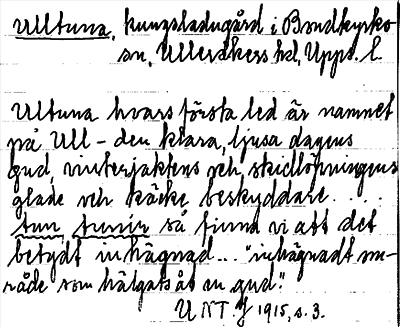 Ulltuna, kungsladugård i Bondkyrko
sn, Ulleråkers hd, Upps. l
Ultuna hvars första led är namnet
på Ull – den klara, ljusa dagens
gud, vinterjaktens och skidlöpningens
glade och käcke beskyddare....
tun, tunir så finna vi att det
betydt inhägnad... "inhägnadt om-
råde som helgats åt en gud."
UNT. 1915, s. 3.